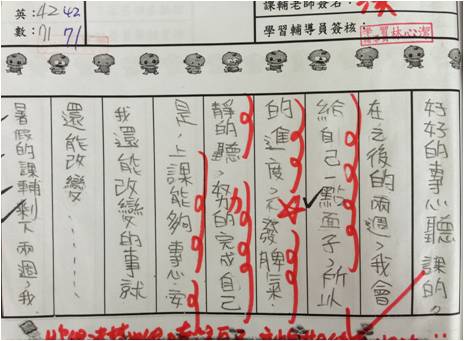 英：42 42
數：71 71
課輔老師簽名：
學習輔導員簽核：
暑假的課輔剩下兩週，我
還能改變……
我還能改變的事就
是，上課能夠專心，安
靜的聽，努力的完成自己
的進度，不發脾氣，
給自己一點面子，所以
在之後的兩週，我會
好好的專心聽課的。